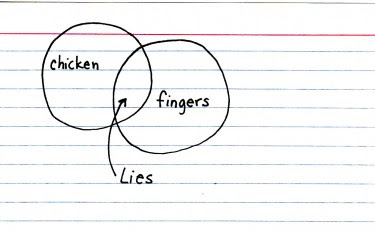 chicken
fingers
Lies